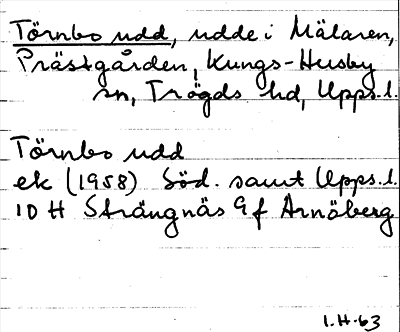 Törnbo udd, udde i Mälaren,
Prästgården, Kungs-Husby
sn, Trögds hd, Upps.l.
Törnbo udd
ek (1958) Söd. samt Upps.l.
10 H Strängnäs 9 f Arnöberg
1.H.63